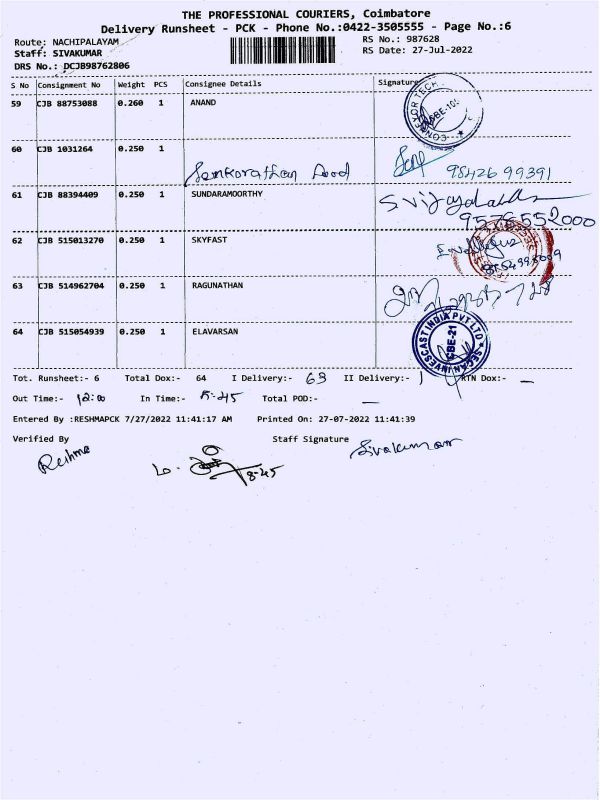 THE PROFESSIONAL COURIERS, Coimbatore
Delivery Runsheet - PCK - Phone No.:0422-3505555 - Page No.:6
Route: NACHIPALAYAM RS No.: 987628
Staff: SIVAKUMAR RS Date: 27-Jul-2022
DRS No.: DCJB98762806
S No Consignment No Weight PCS Consignee Details Signature
59 CJB 88753088 0.260 1 ANAND
60 CJB 1031264 0.250 1
98426 99391
61 CJB 88394409 0.250 1 SUNDARAMOORTHY
62 CJB 515013270 0.250 1 SKYFAST
63 CJB 514962704 0.250 1 RAGUNATHAN
64 CJB 515054939 0.250 1 ELAVARSAN
SEGAN INVESCAST INDIA PVT LTD
CBE-21
Tot. Runsheet:- 6 Total Dox:- 64 I Delivery:- 63 II Delivery:- 1 RTN Dox:- —
Out Time:- 12:00 In Time:- Total POD:- —
Entered By :RESHMAPCK 7/27/2022 11:41:17 AM Printed On: 27-07-2022 11:41:39
Verified By Staff Signature
Reshma Sivakumar
8-45